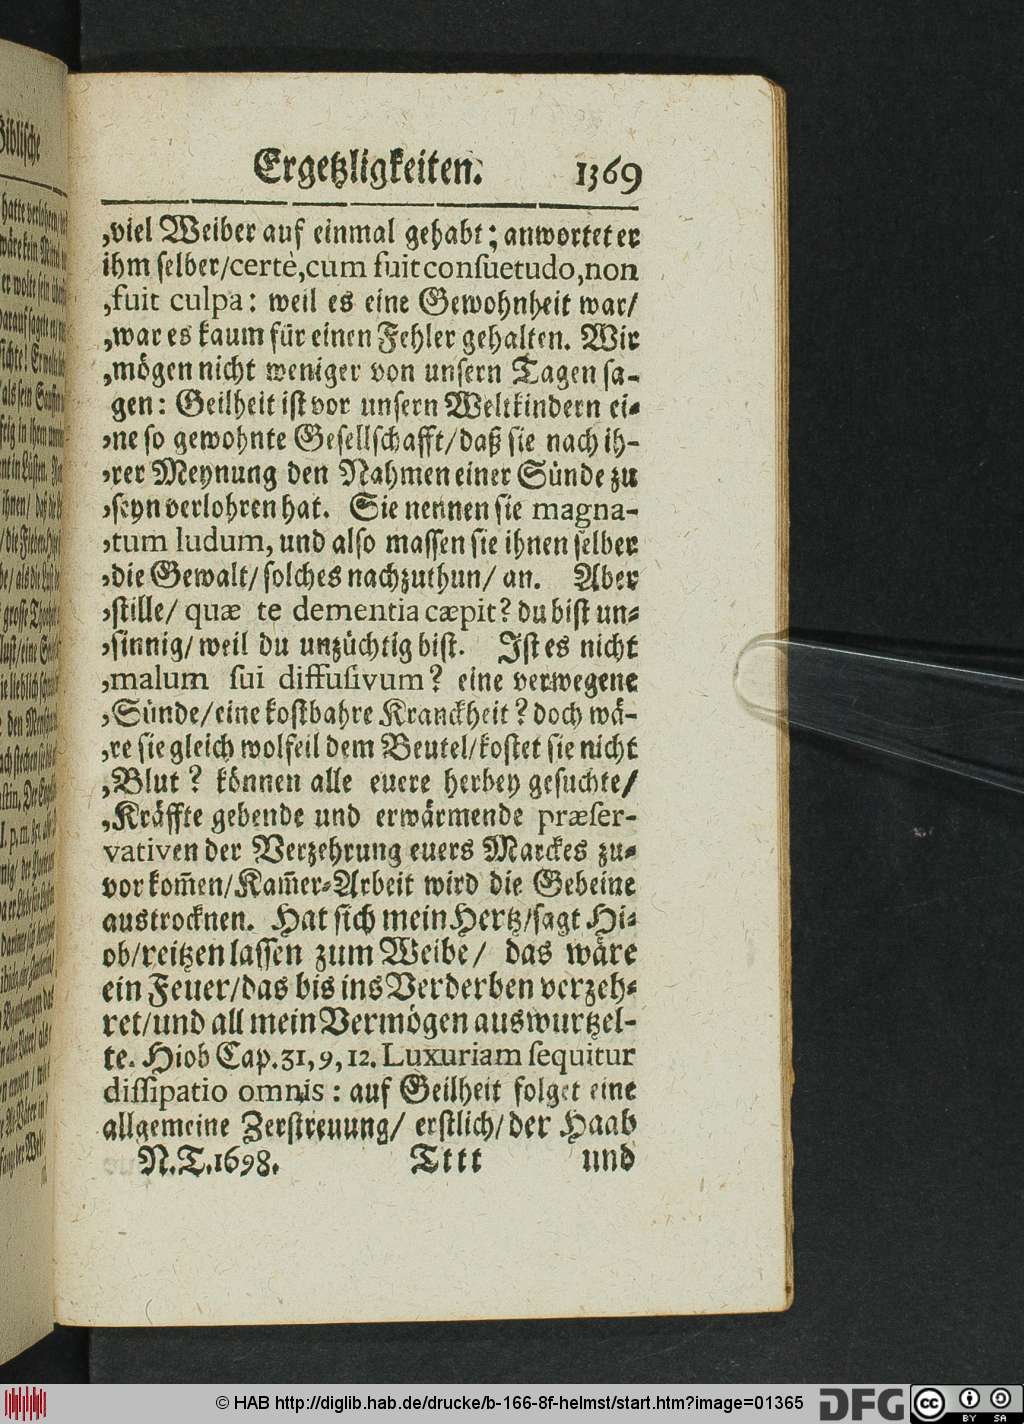 Ergetzligkeiten. 1369
,viel Weiber auf einmal gehabt; anwortet er
ihm selber/certè,cum fuit consuetudo,non
,fuit culpa: weil es eine Gewohnheit war/
,war es kaum für einen Fehler gehalten. Wir
,mögen nicht weniger von unsern Tagen sa-
gen: Geilheit ist vor unsern Weltkindern ei-
,ne so gewohnte Gesellschafft/daß sie nach ih-
,rer Meynung den Nahmen einer Sünde zu
,seyn verlohren hat. Sie nennen sie magna-
,tum ludum, und also massen sie ihnen selber
,die Gewalt/solches nachzuthun/ an. Aber
,stille/ quæ te dementia cæpit? du bist un-
,sinnig/ weil du unzüchtig bist. Ist es nicht
,malum sui diffusivum? eine verwegene
,Sünde/eine kostbahre Kranckheit? doch wä-
,re sie gleich wolfeil dem Beutel/kostet sie nicht
,Blut? können alle euere herbey gesuchte/
,Kräffte gebende und erwärmende præser-
vativen der Verzehrung euers Marckes zu-
vor kom̃en/Kam̃er-Arbeit wird die Gebeine
austrocknen. Hat sich mein Hertz/sagt Hi-
ob/reitzen lassen zum Weibe/ das wäre
ein Feuer/das bis ins Verderben verzeh-
ret/und all mein Vermögen auswurtzel-
te. Hiob Cap. 31, 9, 12. Luxuriam sequitur
dissipatio omnis: auf Geilheit folget eine
allgemeine Zerstreuung/ erstlich/der Haab
N.T.1698. Tttt und
© HAB http://diglib.hab.de/drucke/b-166-8f-helmst/start.htm?image=01365 DFG cc BY SA